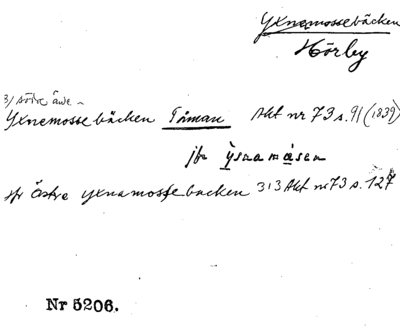 Yxnemossebäcken
Hörby
3/ södra åve.
Yxnemossebäcken Tåman Akt nr 73 s. 91 (1839)
jfr ysnamåsen
jfr Östre yxnamossebäcken 313 Akt nr 73 s. 127
Nr 5206.